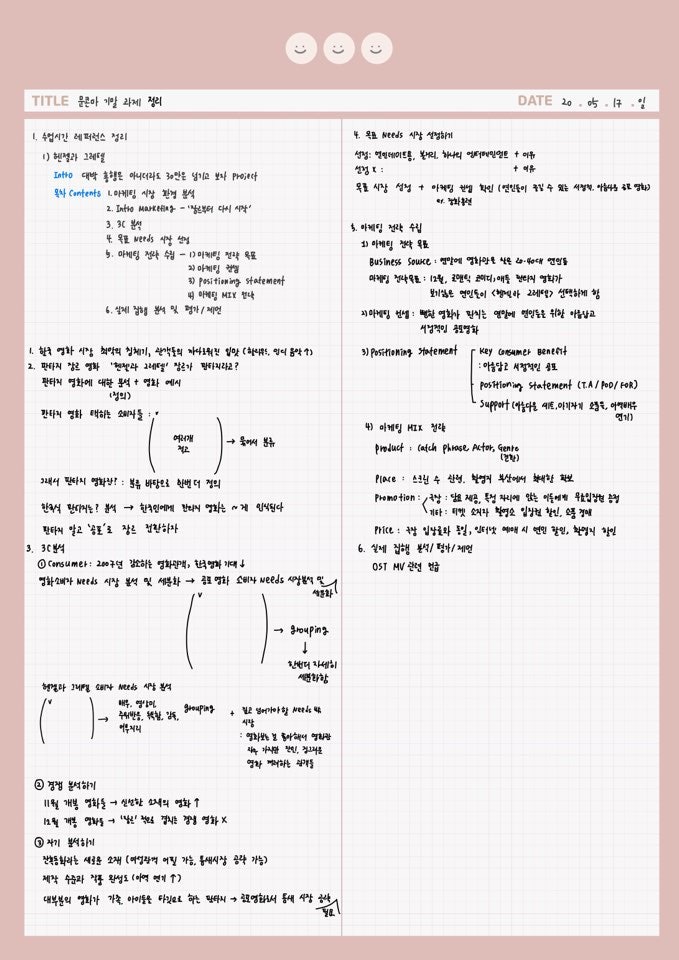 TITLE 문콘마 기말 과제 정리
DATE 20 . 05 . 17 . 일
1. 수업시간 레퍼런스 정리
1) 헨젤과 그레텔
Intro 대박 흥행은 아니더라도 30만은 넘기고 보자 project
목차 Contents 1. 마케팅 시장 환경 분석
2. Intro Marketing - '질문부터 다시 시작'
3. 3C 분석
4. 목표 Needs 시장 선정
5. 마케팅 전략 수립 - 1) 마케팅 전략 목표
2) 마케팅 컨셉
3) Positioning Statement
4) 마케팅 MIX 전략
6. 실제 집행 분석 및 평가/제언
1. 한국 영화 시장 최악의 침체기, 관객들의 까다로워진 입맛
2. 판타지 장르 영화 '헨젤과 그레텔' 장르가 판타지라고?
판타지 영화에 대한 분석 + 영화 예시
(정의)
판타지 영화 택하는 소비자들 : v
여러개
적고
→ 묶어서 분류
그래서 판타지 영화란? : 분류 바탕으로 한번 더 정의
한국식 판타지는? 분석 → 한국인에게 판타지 영화는 ~게 인식된다
판타지 말고 '공포'로 장르 전환하자
3. 3C분석
① Consumer : 2007년 감소하는 영화관객, 한국영화 기대↓
영화소비자 Needs 시장 분석 및 세분화 → 공포영화 소비자 Needs 시장분석 및
세분화
v
→ grouping
↓
한번더 자세히
세분화함
헨젤과 그레텔 소비자 Needs 시장 분석
v
→ 배우, 영상미,
주위반응, 독특함, 감독,
이루지리
grouping
+ 짚고 넘어가야 할 Needs
시장
② 경쟁 분석하기
11월 개봉 영화들 → 신선한 소재의 영화 ↑
12월 개봉 영화들 → '질문' 적으로 겹치는 경쟁 영화 X
③ 자기 분석하기
잔혹동화라는 새로운 소재 (여성관객 어필 가능, 틈새시장 공략 가능)
제작 수준과 작품 완성도 (아역 연기 ↑)
대부분의 영화가 가족, 아이들을 타깃으로 하는 판타지 → 공포영화로서 틈새 시장 공략
필요
4. 목표 Needs 시장 선정하기
선정: 엔터테인먼트 + 이유
선정 X : + 이유
목표 시장 선정 + 마케팅 컨셉 확인 (연인들이 즐길 수 있는 서정적, 아름다운 공포 영화)
5. 마케팅 전략 수립
1) 마케팅 전략 목표
Business Source : 연말에 영화관을 찾은 20-40대 연인들
마케팅 전략목표 : 12월, 로맨틱 코미디, 애들 판타지 영화가
보기싫은 연인들이 <헨젤과 그레텔> 선택하게 함
2) 마케팅 컨셉 : 뻔한 영화가 판치는 연말에 연인들을 위한 아름답고
서정적인 공포영화
3) Positioning Statement
Key Consumer Benefit
: 아름답고 서정적인 공포
Positioning Statement (T.A / POD / FOR)
Support (아름다운 세트, 미기자기 소품들, 아역배우
연기)
4) 마케팅 MIX 전략
Product : Catch Phrase, Actor, Genre
(전환)
Place : 스크린 수 선점, 촬영지 부산에서 최대한 확보
Promotion : 극장 : 담요 제공, 특정 자리에 앉는 이들에게 무료입장권 증정
기타 : 티켓 소지자 촬영소 입장권 할인, 소품 경매
Price : 극장 입장료와 동일, 인터넷 예매 시 연인 할인, 촬영지 할인
6. 실제 집행 분석/평가/제언
OST MV 관련 언급